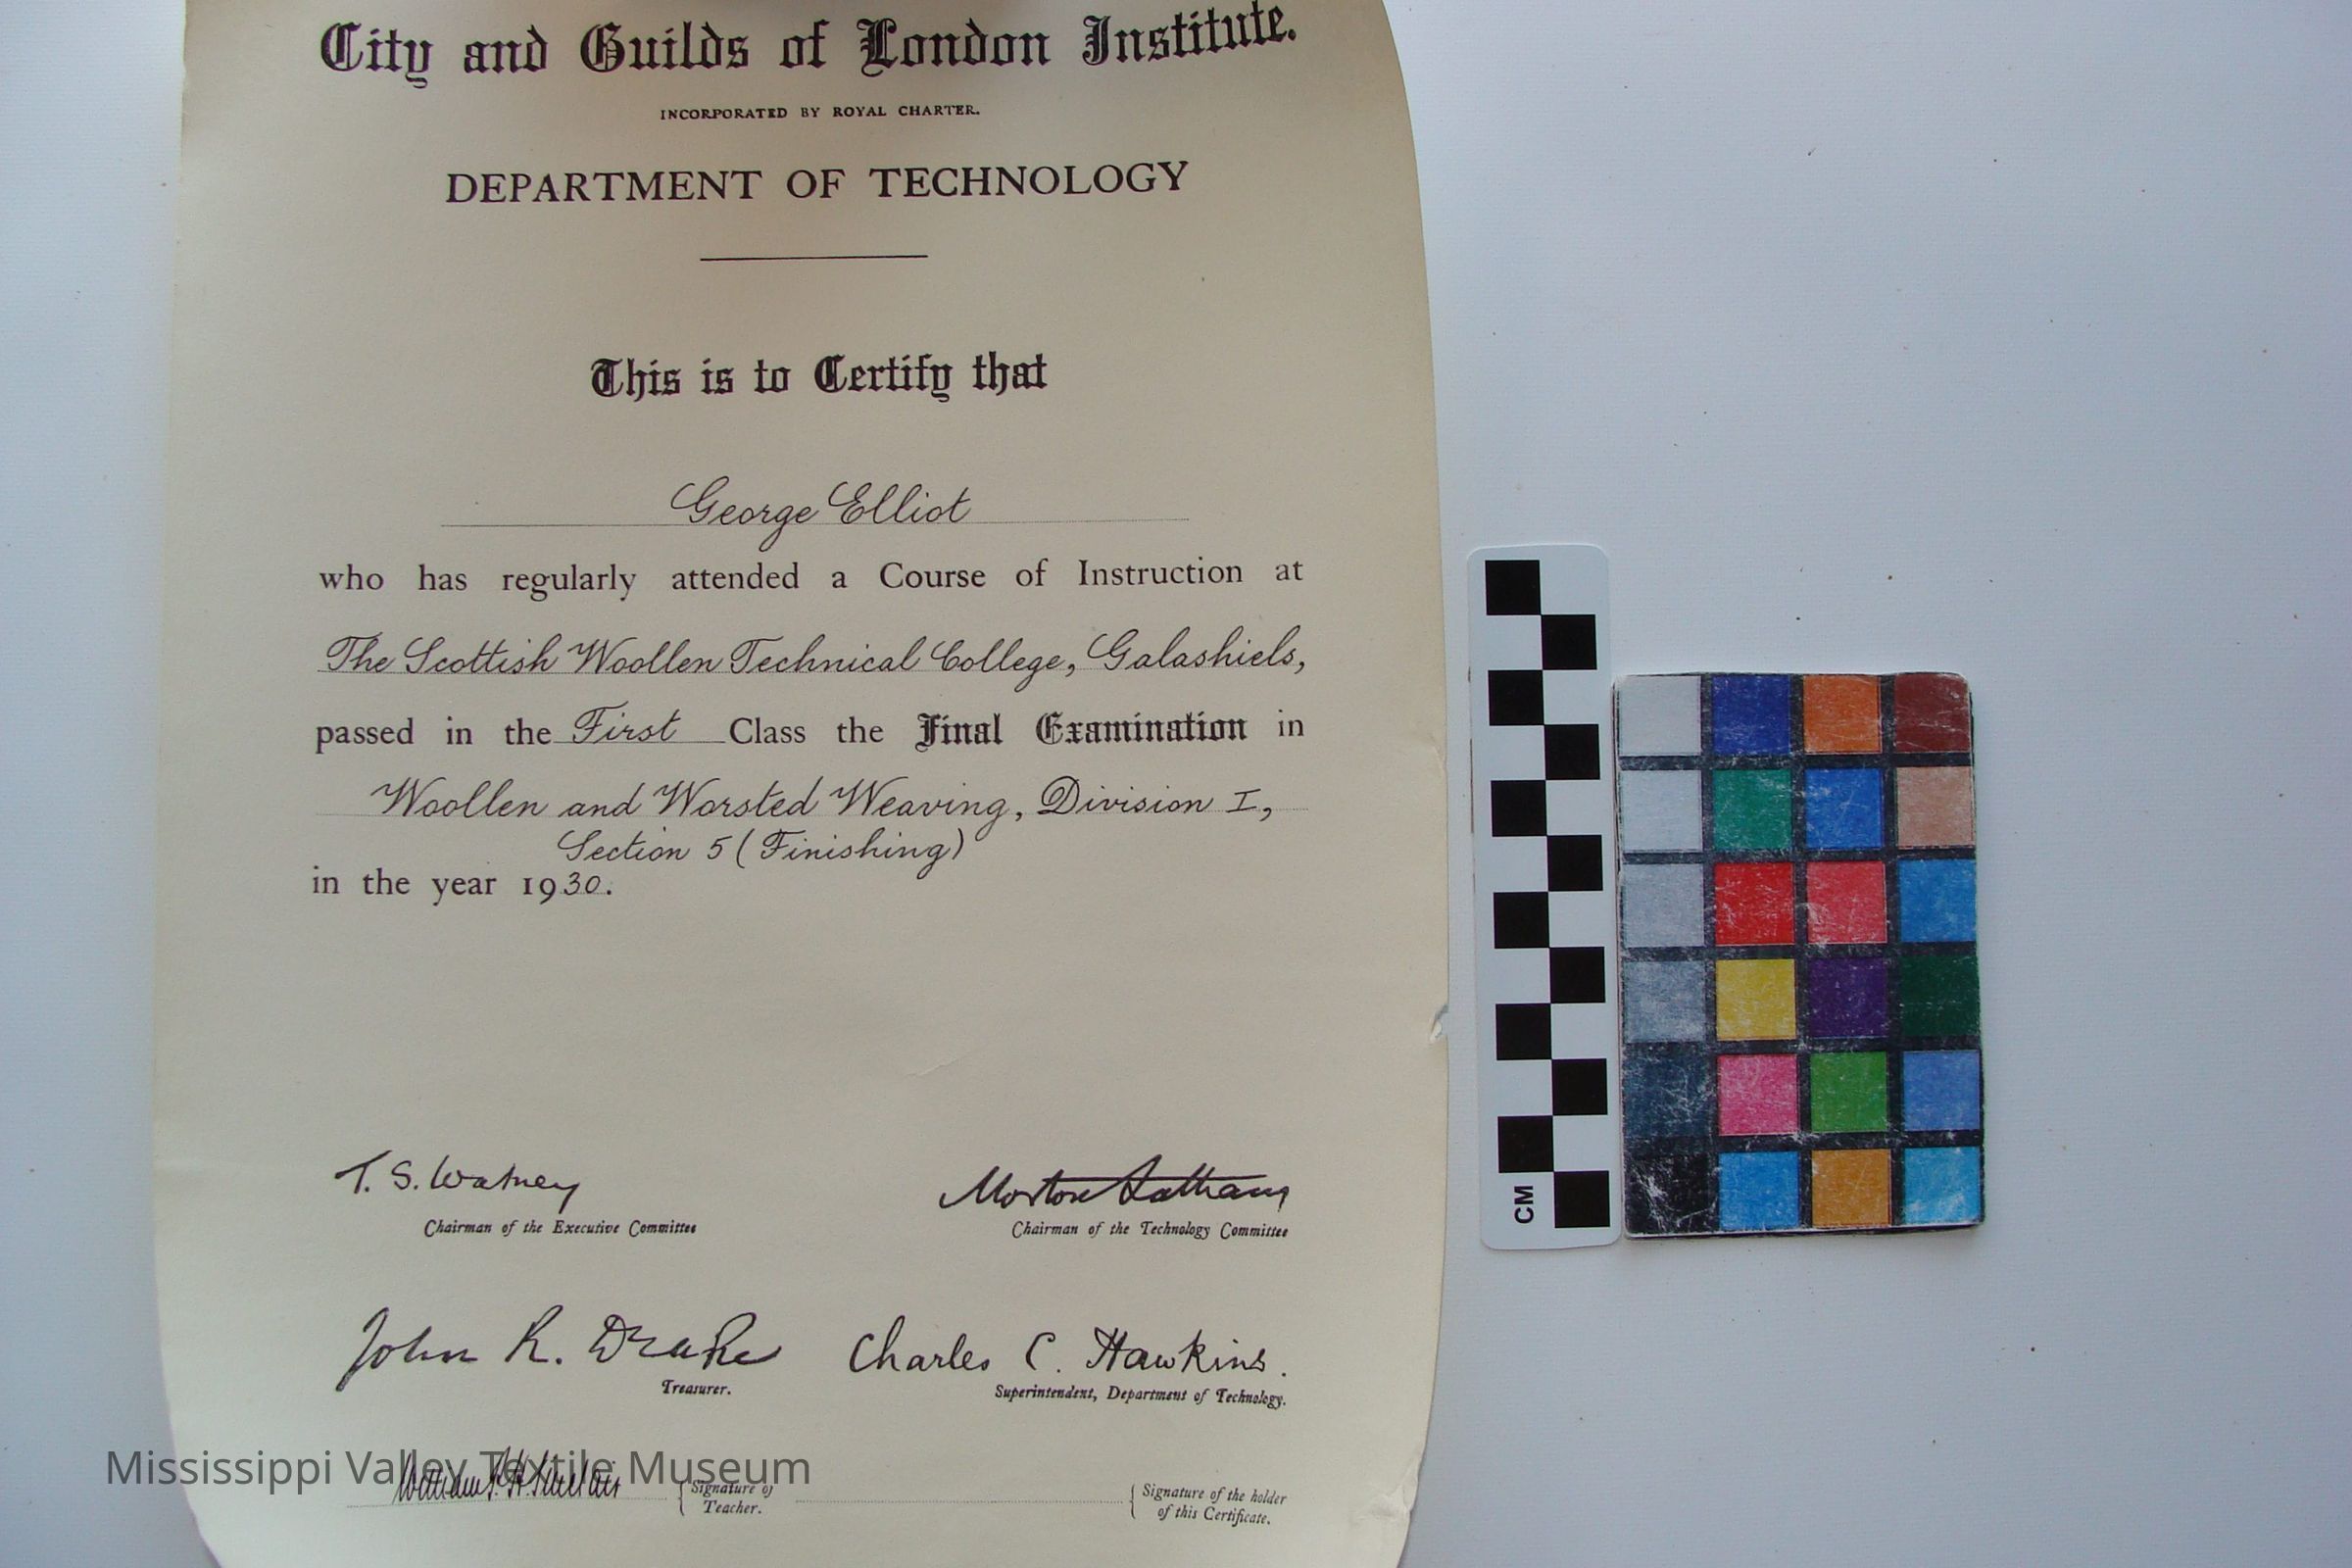 City and Guilds of London Institute.
INCORPORATED BY ROYAL CHARTER.
DEPARTMENT OF TECHNOLOGY
This is to Certify that
George Elliot
who has regularly attended a Course of Instruction at
The Scottish Woollen Technical College, Galashiels,
passed in the First Class the Final Examination in
Woollen and Worsted Weaving, Division I,
Section 5 (Finishing)
in the year 1930.
T. S. Watney
Chairman of the Executive Committee
Morton Latham
Chairman of the Technology Committee
John R. Drake
Treasurer.
Charles C. Hawkins.
Superintendent, Department of Technology.
William
Signature of
Teacher.
Signature of the holder
of this Certificate.
Mississippi Valley Textile Museum
CM